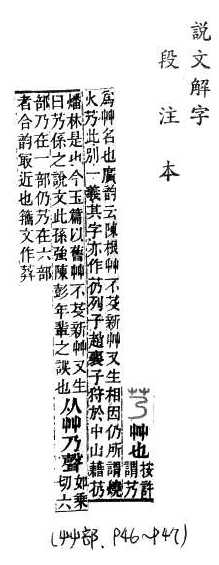 說文解字
段注本
艿 艸也 按許
謂艿
爲艸名也廣韵云陳根艸不芟新艸又生相因仍所謂燒
火艿此別一義其字亦作芿列子趙襄子狩於中山藉芿
燔林是也今玉篇以舊艸不芟新艸又生
曰艿係之說文此孫強陳彭年輩之誤也
从艸乃聲 如乘
切六
部乃在一部仍艿在六部
者合韵最近也籒文作
(艸部、P46~P47)